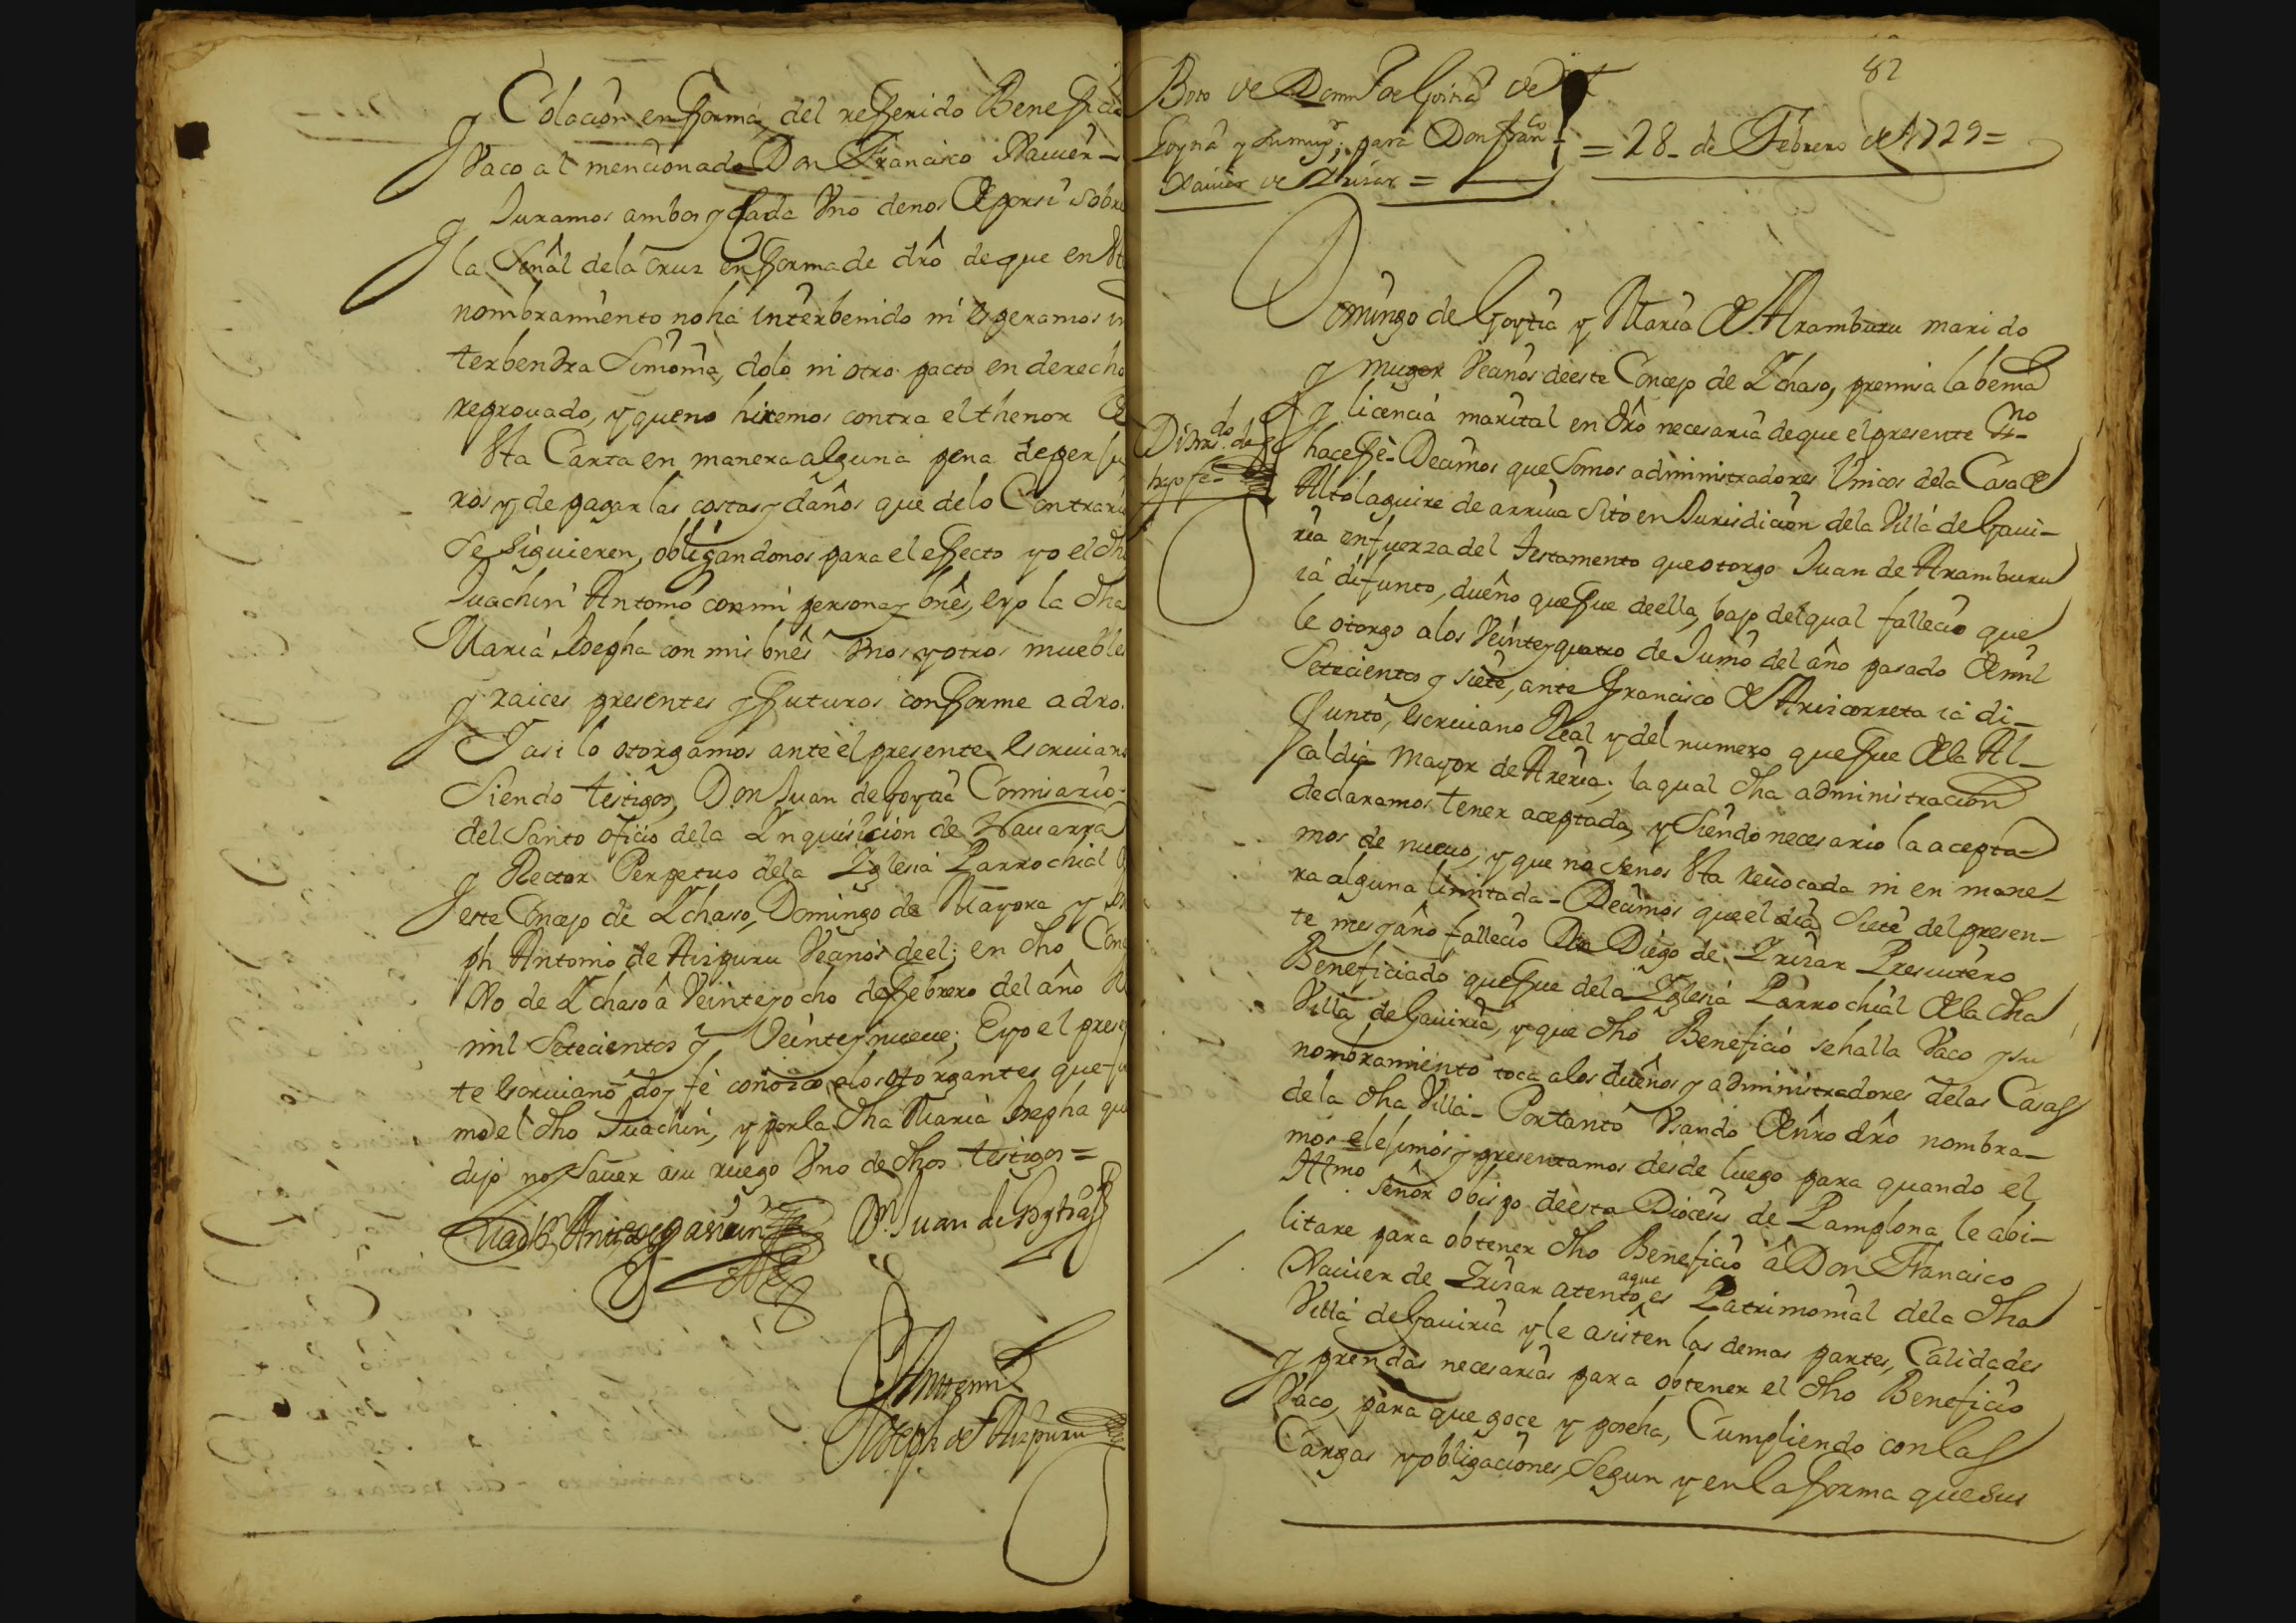 Colacion en fforma, del refferido Beneficio
Vaco al mencionado Don Francisco Xauier-
y Juramos ambos y Cada Uno denos de por si sobre
la Señal dela cruz en fforma de dr̂o deque en
nombramiento no ha interbenido ni esperamos in
terbendra Simonia, dolo ni otro pacto en derecho
reprouado, y que no hiremos contra el thenor de
Sta Carta en manera alguna pena de per ju
ros y de pagar las costas y daños que delo Contrario
se siguieren, obligandonos para el effecto yo el dho
Juachin Antonio con mi persona y bnês, e yo la dha
Maria Josepha con mis bnês Unos y otros muebles
y raices presentes y ffuturos confforme a dro.
Y asi lo otorgamos ante el presente escriuano
Siendo testigos, Don Juan de Goytia Comisario
del Santo oficio dela Inquisicion de Nauarra
y Rector Perpetuo dela Iglesia Parrochial de
este Concejo de Ychaso, Domingo de Mayora y Jos
ph Antonio de Aizpuru Vecinos de el; en dho Conce
No de Ychaso â Veinte y ocho de ffebrero del año de
mil Setecientos y Veinte y nueue; E yo el presen
te escriuano doy fe conozco alos otorgantes que fir
mo el dho Juachin, y por la dha Maria Josepha que
dijo no Sauer a su ruego Uno de dhos testigos =
Dn. Juan de Goytia
Antemi
Joseph de Aizpuru
82
de Domo de Goitia de
y su muger para Don Franco
Xauier de Yrizar =
= 28- de Febrero de 1729 =
Domingo de Goytia y Maria de Aramburu marido
y muger Vecinos de este Concejo de Ychaso, premisa la benia
y licencia marital en dr̂o necesaria de que el presente Esno
hace ffê- Decimos que Somos administradores Unicos dela Casa de
Altolaguirre de arriua Sito en Jurisdicion dela Villa de Gaui-
ria en fuerza del testamento que otorgo Juan de Aramburu
ia difunto, dueño que ffue de ella, bajo del qual fallecio que
le otorgo alos Veinte y quatro de Junio del año pasado de mil
Setecientos y siete, ante Francisco de Arizcorreta ia di-
ffunto, escriuano Real y del numero que ffue dela Al-
caldia Mayor de Areria; la qual dha administracion
declaramos tener aceptada, y Siendo necesario la acepta-
mos de nueuo, y que no senos Sta reuocada ni en mane-
ra alguna limitada- Decimos que el dia Siete del presen-
te mes y año fallecio Dn Diego de Yrizar Presuitero
Beneficiado que ffue dela Iglesia Parrochial dela dha
Villa de Gauiria, y que dho Beneficio se halla Vaco y su
nombramiento toca alos dueños y administradores delas Casas
dela dha Villa- Por tanto Usando de nr̂o dr̂o nombra-
mos elejimos y presentamos desde luego para quando el
Illmo. Señor obispo de esta Diocesis de Pamplona le abi-
litare para obtener dho Beneficio â Don Francisco
Xauier de Yrizar atento aque es Patrimonial dela dha
Villa de Gauiria y le asisten las demas partes, Calidades
y prendas necesarias para obtener el dho Beneficio
Vaco, para que goce y poseha, Cumpliendo con las
Cargas y obligaciones, Segun y en la fforma que sus
do
hijo fe-